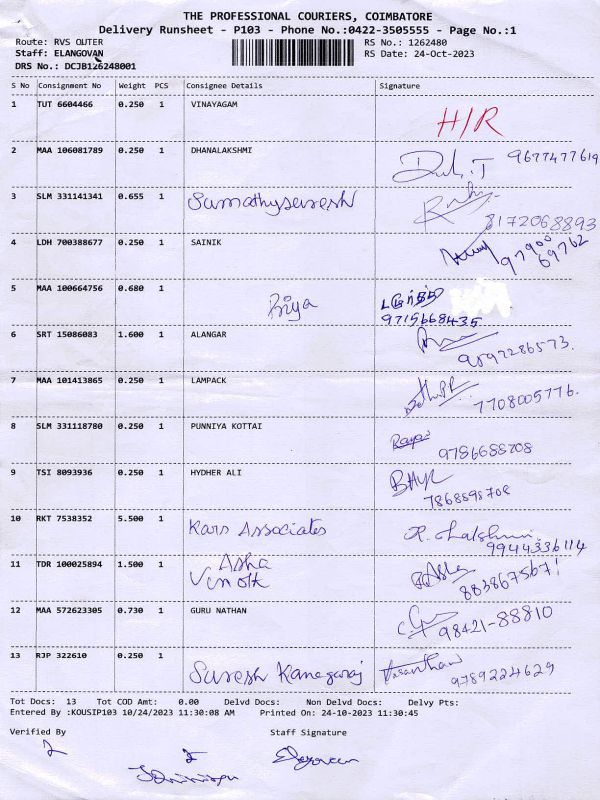 THE PROFESSIONAL COURIERS, COIMBATORE
Delivery Runsheet - P103 - Phone No.:0422-3505555 - Page No.:1
Route: RVS OUTER RS No.: 1262480
Staff: ELANGOVAN RS Date: 24-Oct-2023
DRS No.: DCJB126248001
S No Consignment No Weight PCS Consignee Details Signature
1 TUT 6604466 0.250 1 VINAYAGAM H/R
2 MAA 106081789 0.250 1 DHANALAKSHMI 9677477619
3 SLM 331141341 0.655 1 Sumathysuresh
8172068893
4 LDH 700388677 0.250 1 SAINIK 97900
69762
5 MAA 100664756 0.680 1 Priya
9715668435
6 SRT 15086083 1.600 1 ALANGAR
9597286573.
7 MAA 101413865 0.250 1 LAMPACK
7708005776.
8 SLM 331118780 0.250 1 PUNNIYA KOTTAI
9786688708
9 TSI 8093936 0.250 1 HYDHER ALI
7868898708
10 RKT 7538352 5.500 1 Kars Associates
9944336114
11 TDR 100025894 1.500 1 Asha
Vinoth 8838675671
12 MAA 572623305 0.730 1 GURU NATHAN 98421-88810
13 RJP 322610 0.250 1 Suresh Kanagaraj Vasanthan
9789224629
Tot Docs: 13 Tot COD Amt: 0.00 Delvd Docs: Non Delvd Docs: Delvy Pts:
Entered By :KOUSIP103 10/24/2023 11:30:08 AM Printed On: 24-10-2023 11:30:45
Verified By Staff Signature